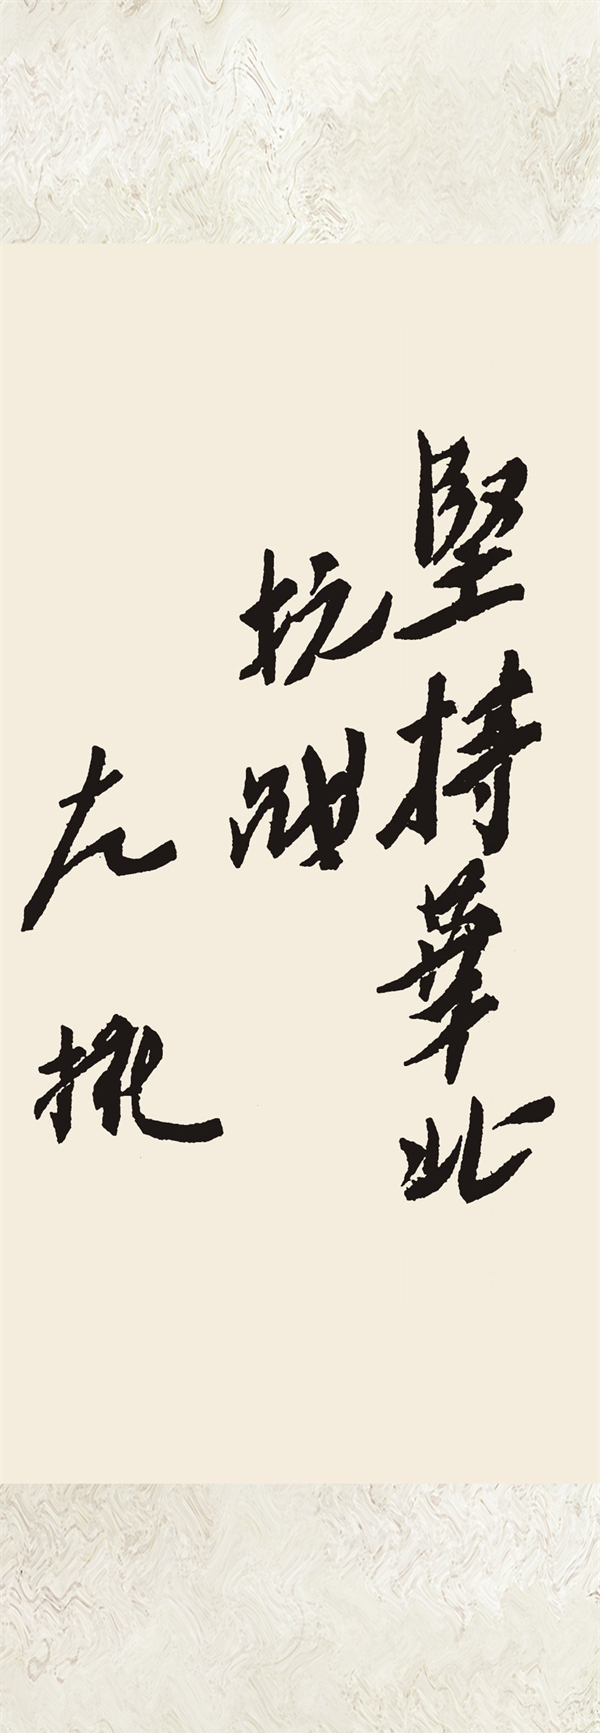 堅持華北
抗戰
左權